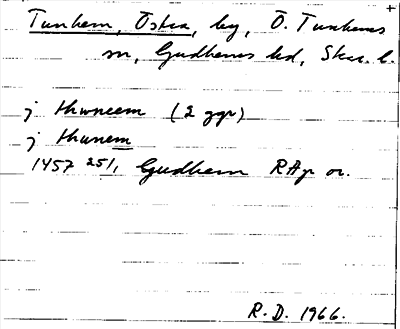 +
Tunhem, Östra, by, Ö. Tunhems
sn, Gudhems hd, Skar. l.
j thwneem (2 ggr)
j thunem
1457 25/1, Gudhem RAp or.
R. D. 1966.